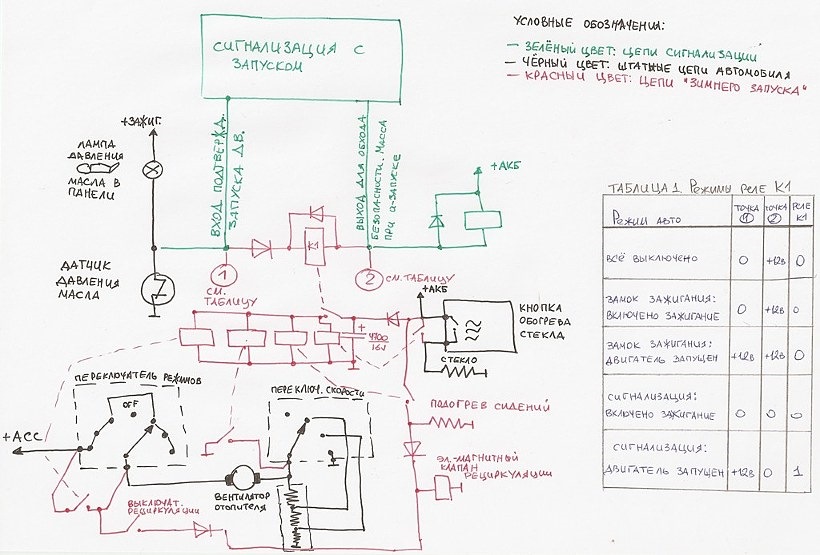 УСЛОВНЫЕ ОБОЗНАЧЕНИЯ:
— ЗЕЛЁНЫЙ ЦВЕТ: ЦЕПИ СИГНАЛИЗАЦИИ
— ЧЁРНЫЙ ЦВЕТ: ШТАТНЫЕ ЦЕПИ АВТОМОБИЛЯ
— КРАСНЫЙ ЦВЕТ: ЦЕПИ "ЗИМНЕГО ЗАПУСКА"
СИГНАЛИЗАЦИЯ С
ЗАПУСКОМ
+ЗАЖИГ.
ЛАМПА
ДАВЛЕНИЯ
МАСЛА В
ПАНЕЛИ
ВХОД ПОДТВЕРЖД.
ЗАПУСКА ДВ.
ВЫХОД ДЛЯ ОБХОДА
БЕЗОПАСНОСТИ. МАССА
ПРИ а-ЗАПУСКЕ
+АКБ
K1
ДАТЧИК
ДАВЛЕНИЯ
МАСЛА
1
СМ.
ТАБЛИЦУ
2
СМ. ТАБЛИЦУ
+АКБ
КНОПКА
ОБОГРЕВА
СТЕКЛА
+
4700
16V
СТЕКЛО
ПЕРЕКЛЮЧАТЕЛЬ РЕЖИМОВ
OFF
ПЕРЕКЛЮЧ. СКОРОСТИ
+АСС
ПОДОГРЕВ СИДЕНИЙ
ЭЛ.-МАГНИТНЫЙ
КЛАПАН
РЕЦИРКУЛЯЦИИ
ВЕНТИЛЯТОР
ОТОПИТЕЛЯ
ВЫКЛЮЧАТ.
РЕЦИРКУЛЯЦИИ
ТАБЛИЦА 1. Режимы реле K1
Режим авто ТОЧКА 1 ТОЧКА 2 РЕЛЕ K1
ВСЁ ВЫКЛЮЧЕНО 0 +12в 0
ЗАМОК ЗАЖИГАНИЯ:
ВКЛЮЧЕНО ЗАЖИГАНИЕ 0 +12в 0
ЗАМОК ЗАЖИГАНИЯ:
ДВИГАТЕЛЬ ЗАПУЩЕН +12в +12в 0
СИГНАЛИЗАЦИЯ:
ВКЛЮЧЕНО ЗАЖИГАНИЕ 0 0 0
СИГНАЛИЗАЦИЯ:
ДВИГАТЕЛЬ ЗАПУЩЕН +12в 0 1